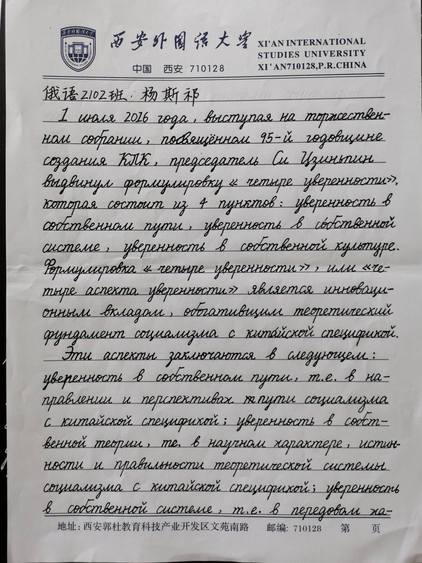 西安外国语大学
中国 西安 710128
XI'AN INTERNATIONAL
STUDIES UNIVERSITY
XI'AN710128,P.R.CHINA
俄语2102班. 杨斯祁
1 июля 2016 года, выступая на торжествен-
ном собрании, посвящённом 95-й годовщине
создания КПК, председатель Си Цзиньпин
выдвинул формулировку «четыре уверенности»,
которая состоит из 4 пунктов: уверенность в
собственном пути, уверенность в собственной
системе, уверенность в собственной культуре.
Формулировка «четыре уверенности», или «че-
тыре аспекта уверенности» является инноваци-
онным вкладом, обогативщим теоретический
фундамент социализма с китайской спецификой.
Эти аспекты заключаются в следующем:
уверенность в собственном пути, т.е. в на-
правлении и перспективах пути социализма
с китайской спецификой; уверенность в собст-
венной теории, т.е. в научном характере, истин-
ности и правильности теоретической системы
социализма с китайской спецификой; уверенность
в собственной системе, т.е. в передовом ха-
地址: 西安郭杜教育科技产业开发区文苑南路 邮编: 710128 第 页